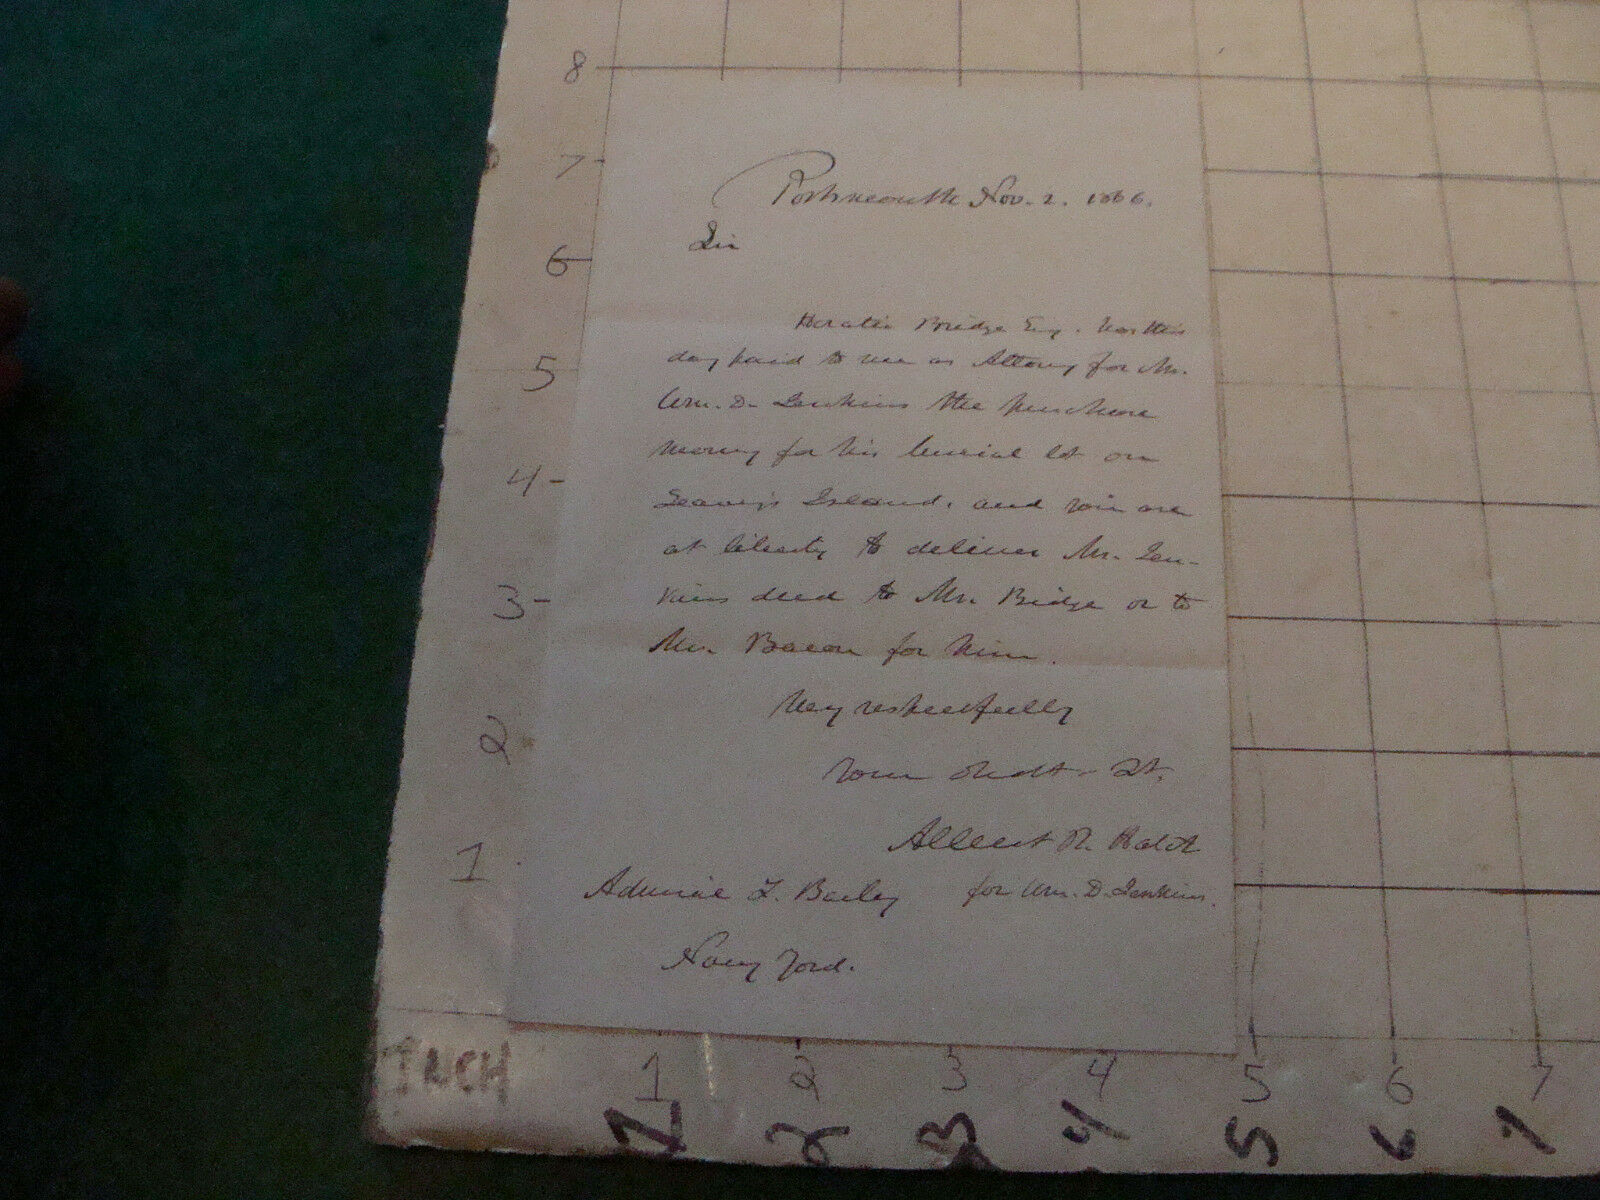 8
7
6
5
4
3
2
1
Portsmouth Nov. 2. 1866.
Sir
Horatio Bridge Esq. has this
day paid to me as Attorney for Mr.
Wm. D. Jenkins the purchase
money for his burial lot on
Seavey's Island, and you are
at liberty to deliver Mr. Jen-
kins deed to Mr. Bridge or to
Mr. Bacon for him.
Very respectfully
Your Obdt. St.
Albert R. Hatch
for Wm. D. Jenkins.
Admiral T. Bailey
Navy Yard.
INCH
1 2 3 4 5 6 7
1 2 3 4 5 6 7